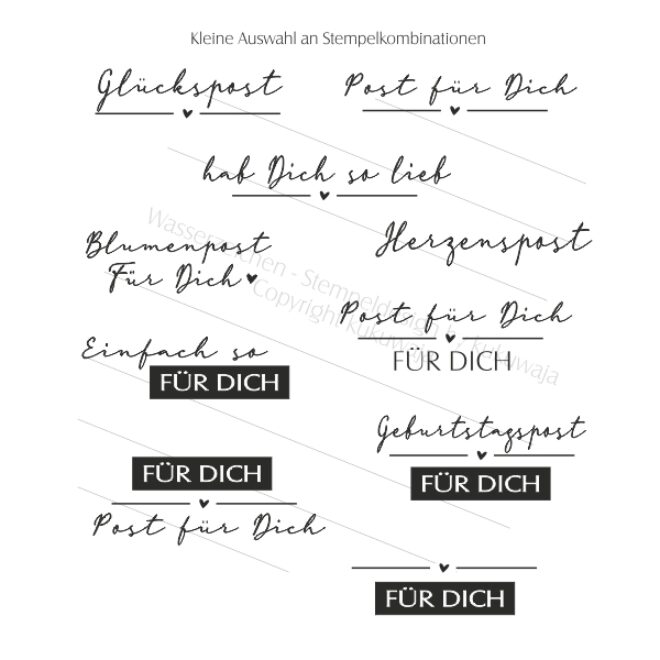 Kleine Auswahl an Stempelkombinationen
Glückspost
Post für Dich
hab Dich so lieb
Blumenpost
Für Dich
Herzenspost
Post für Dich
FÜR DICH
Einfach so
FÜR DICH
Geburtstagspost
FÜR DICH
FÜR DICH
Post für Dich
FÜR DICH
Wasserzeichen - Stempeldesign by kukuwaja
Copyright Kukuwaja